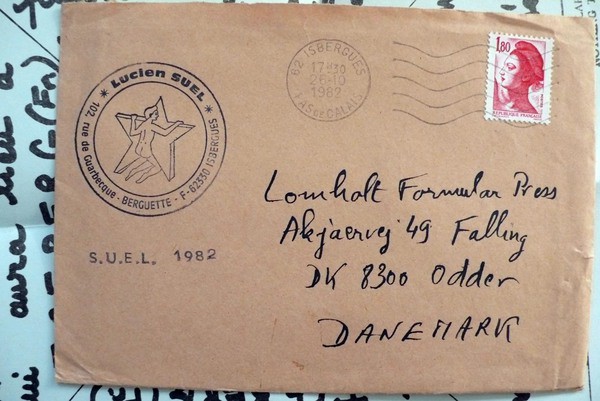 * Lucien SUEL *
102, rue de Guarbecque - BERGUETTE - F-62330 ISBERGUES
S.U.E.L. 1982
62 ISBERGUES
17H30
26-10
1982
PAS DE CALAIS
1,80
REPUBLIQUE FRANÇAISE
Lomholt Formular Press
Akjaervej 49 Falling
DK 8300 Odder
DANEMARK
aura lieu a